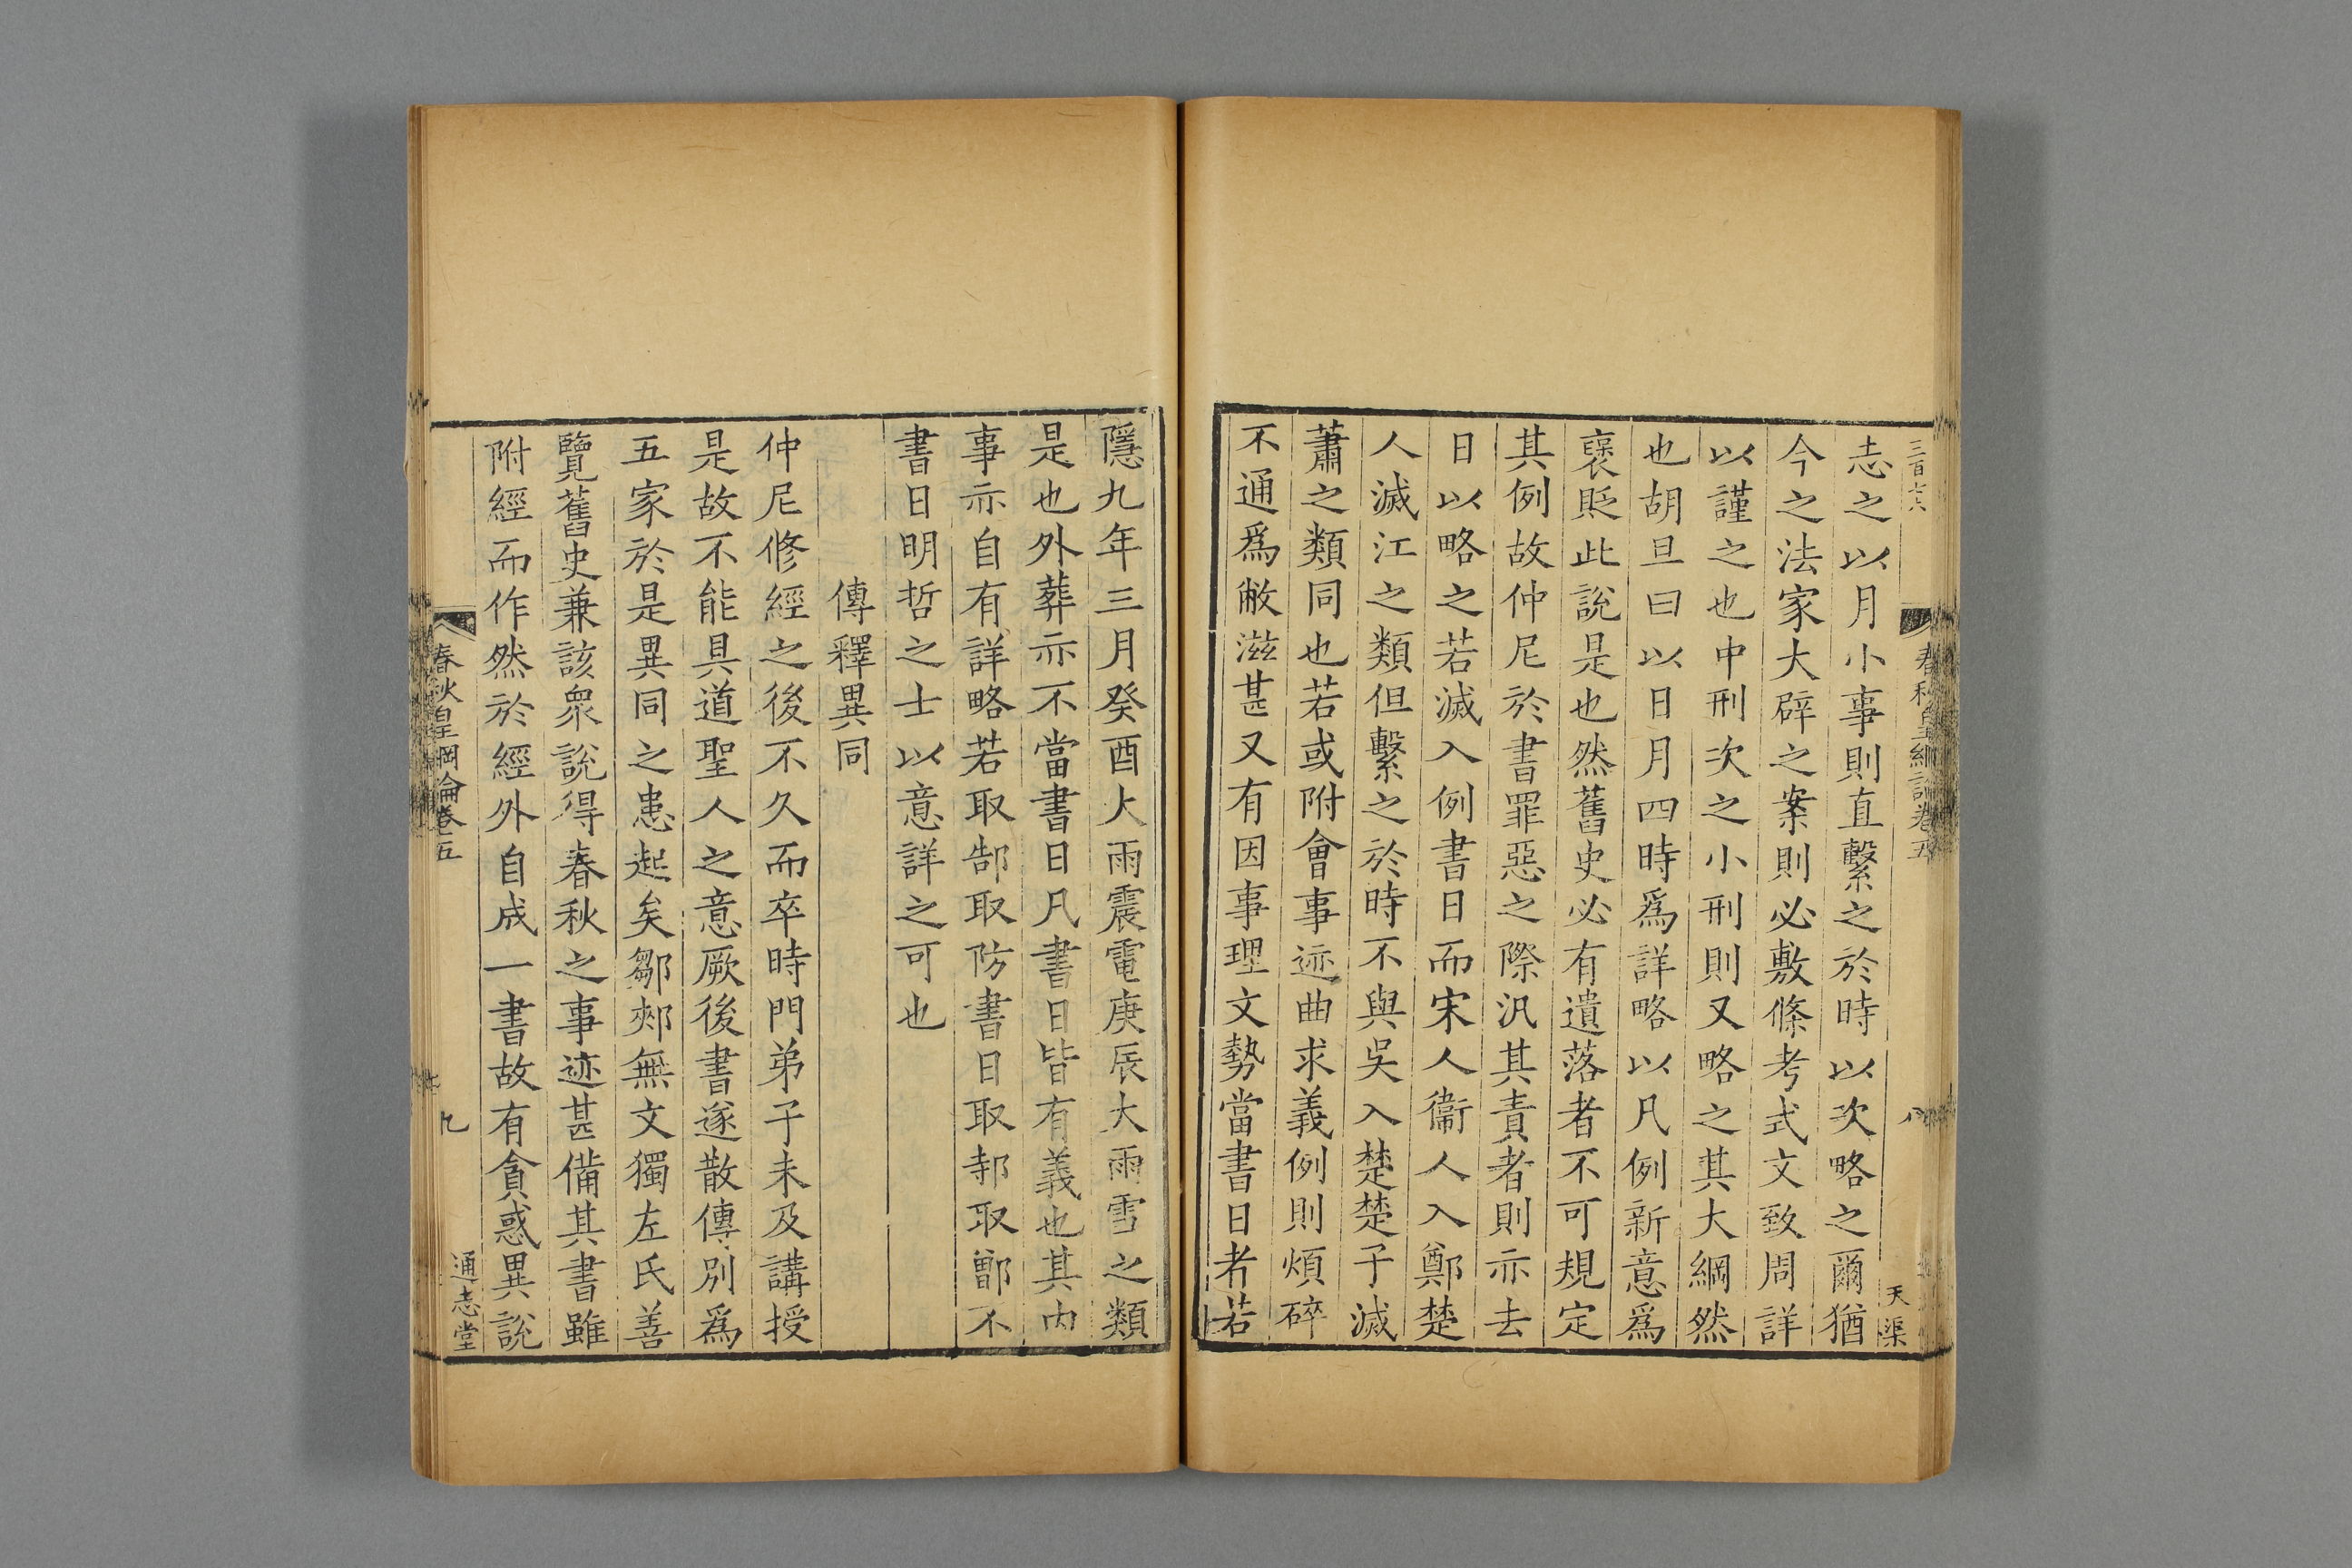 三百六六
春秋皇綱論卷五
八
天渠
志之以月小事則直繫之於時以次略之爾猶
今之法家大辟之案則必敷條考式文致周詳
以謹之也中刑次之小刑則又略之其大綱然
也胡旦曰以日月四時爲詳略以凡例新意爲
襃貶此說是也然舊史必有遺落者不可規定
其例故仲尼於書罪惡之際汎其責者則亦去
日以略之若滅入例書日而宋人衞人入鄭楚
人滅江之類但繫之於時不與吳入楚楚子滅
蕭之類同也若或附會事迹曲求義例則煩碎
不通爲敝滋甚又有因事理文勢當書日者若
隱九年三月癸酉大雨震電庚辰大雨雪之類
是也外葬亦不當書日凡書日皆有義也其内
事亦自有詳略若取郜取防書日取邿取鄫不
書日明哲之士以意詳之可也
傳釋異同
仲尼修經之後不久而卒時門弟子未及講授
是故不能具道聖人之意厥後書遂散傳別爲
五家於是異同之患起矣鄒郟無文獨左氏善
覽舊史兼該衆說得春秋之事迹甚備其書雖
附經而作然於經外自成一書故有貪惑異說
春秋皇綱論卷五
九
通志堂